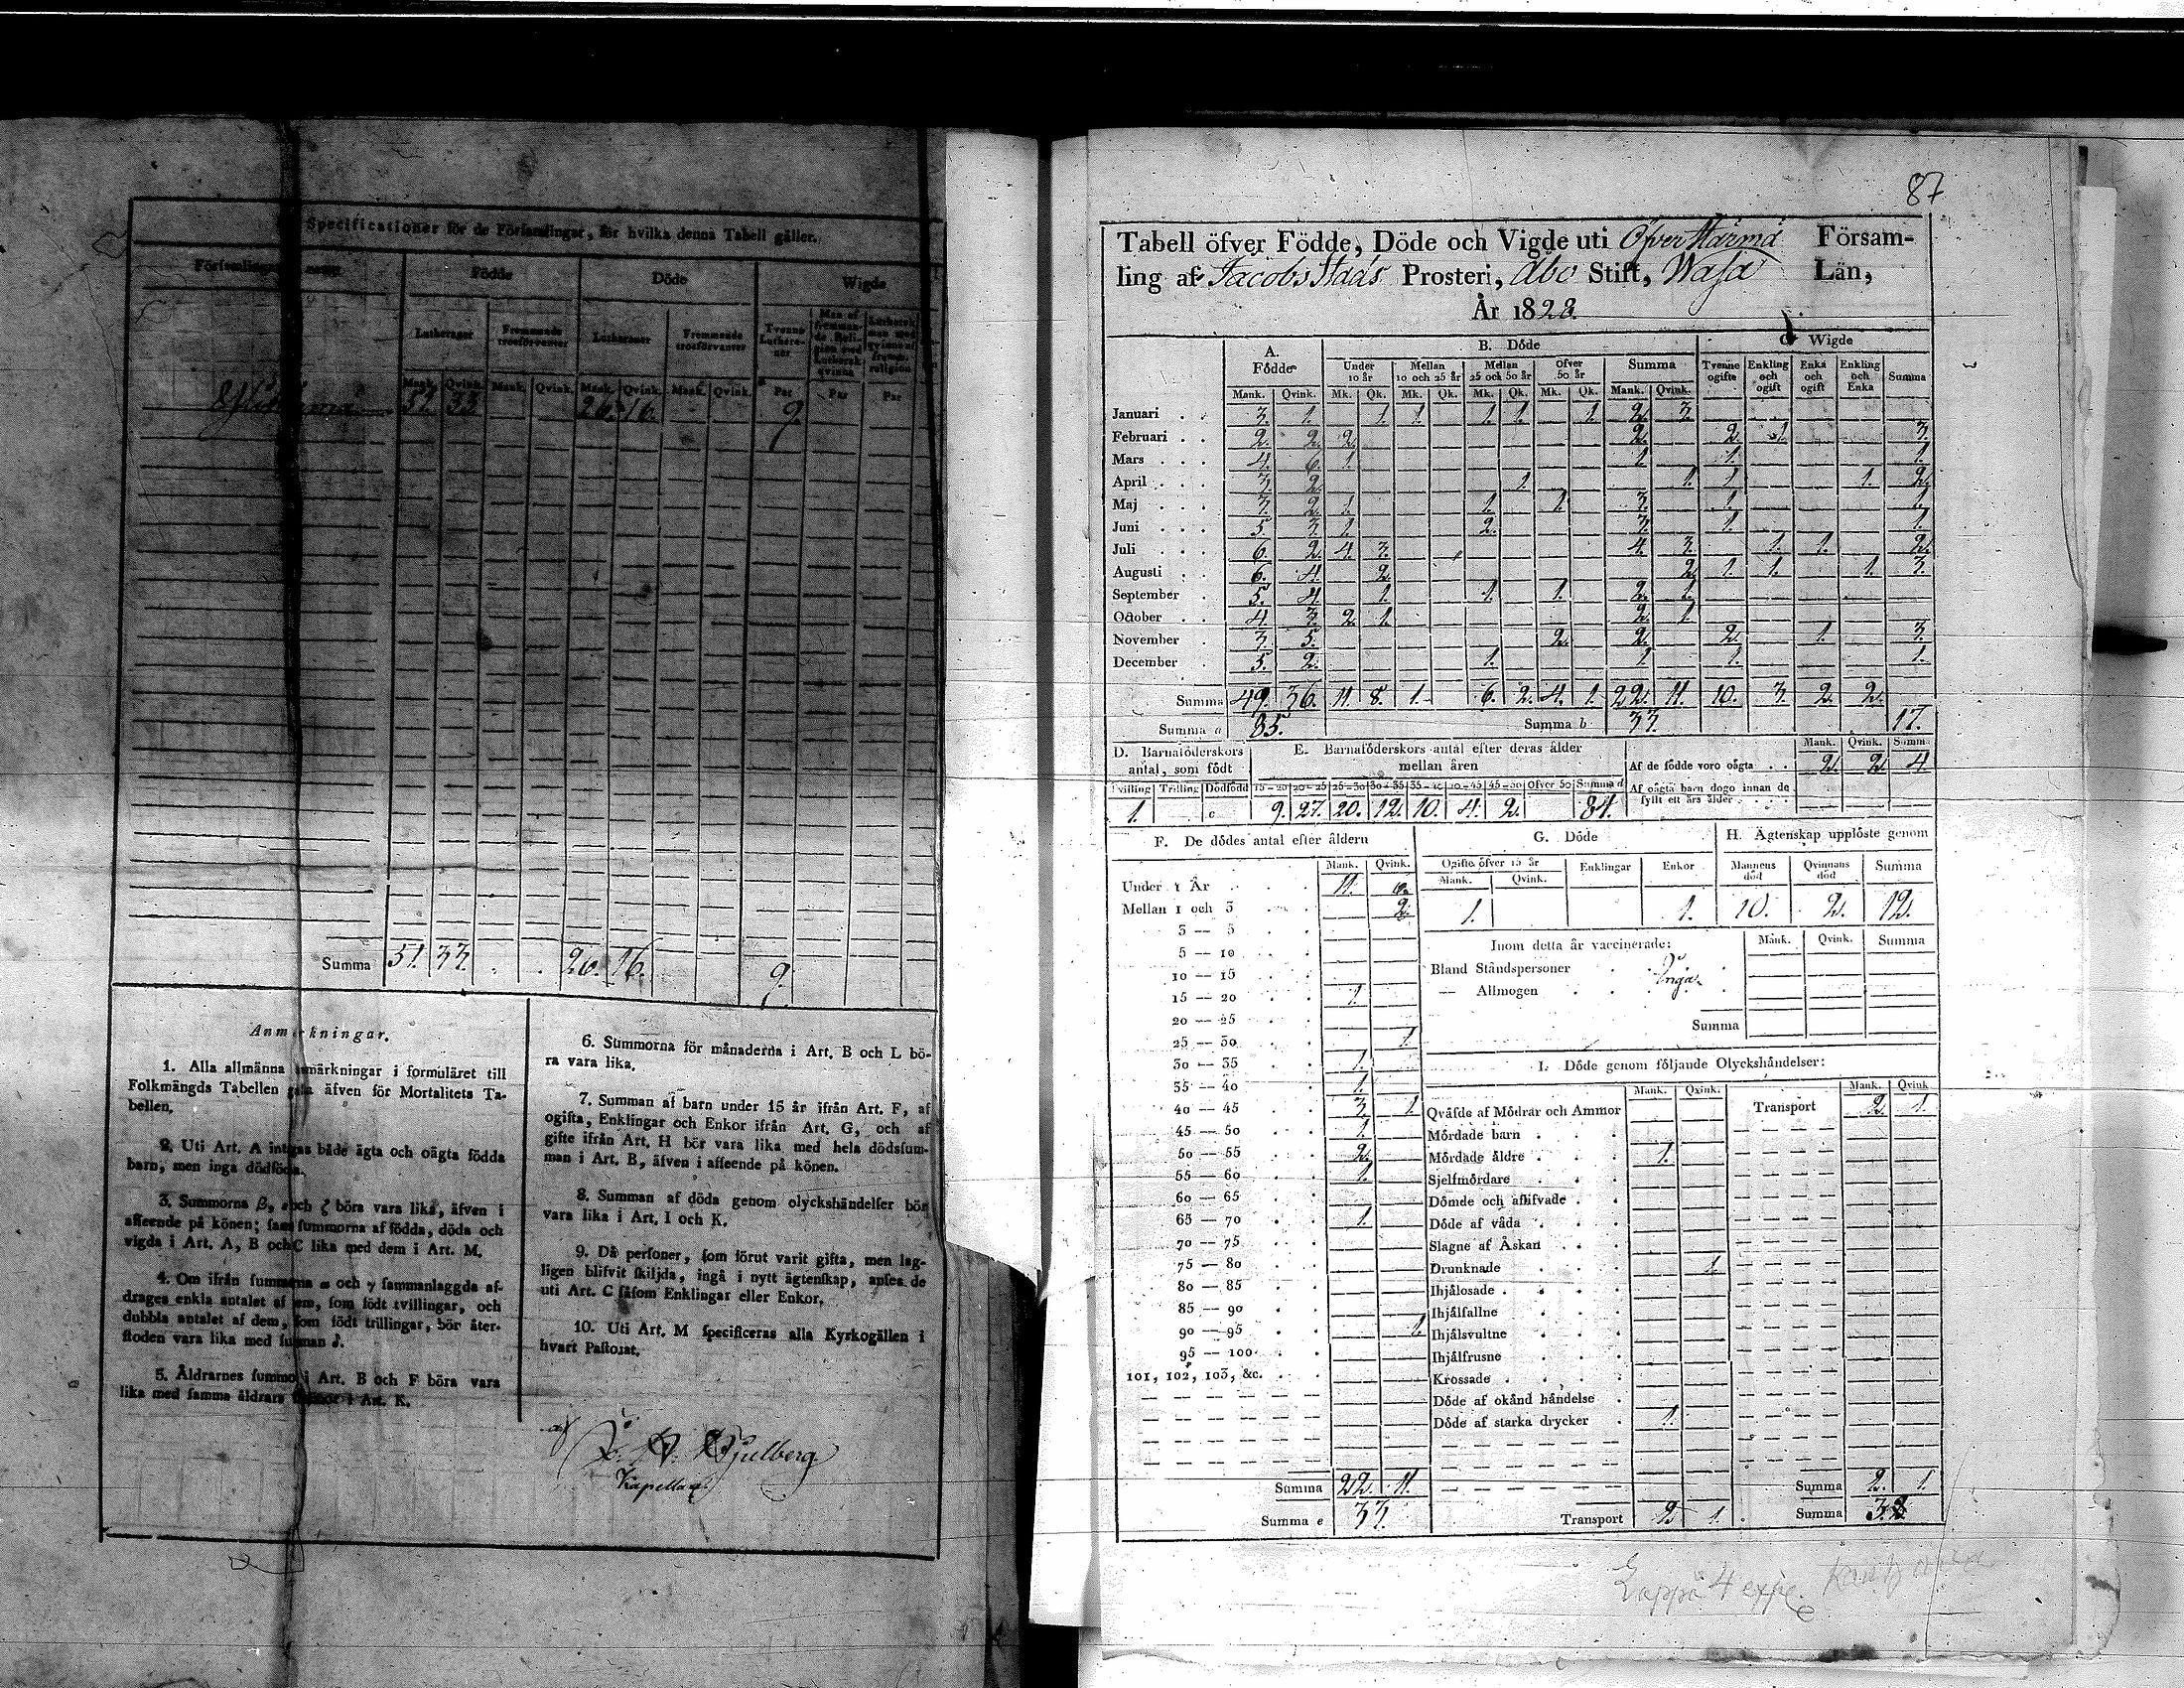 Specificationer för de Församlingar, för hvilka denna Tabell gäller.
Födde Döde Wigde
Lutheraner Fremmande trosförvanter Lutheraner Fremmande trosförvanter Tvenne Lutheraner
Mank. Qvink. Mank. Qvink. Mank. Qvink. Mank. Qvink. Par Par Par
51. 33. 26. 16. 9.
Summa 51. 33. 26. 16. 9.
Anmerkningar.
1. Alla allmänna anmärkningar i formuläret till
Folkmängds Tabellen gälla äfven för Mortalitets Ta-
bellen.
2. Uti Art. A intagas både ägta och oägta födda
barn, men inga dödfödda.
3. Summorna β, ε och ζ böra vara lika, äfven i
afseende på könen; samt summorna af födda, döda och
vigda i Art. A, B och C lika med dem i Art. M.
4. Om ifrån summorna α och γ sammanlaggda af-
drages enkla antalet af dem, som födt tvillingar, och
dubbla antalet af dem, som födt trillingar, bör åter-
stoden vara lika med summan δ.
5. Åldrarnes summor i Art. B och F böra vara
lika med samma åldrars summor i Art. K.
6. Summorna för månaderna i Art. B och L bö-
ra vara lika.
7. Summan af barn under 15 år ifrån Art. F, af
ogifta, Enklingar och Enkor ifrån Art. G, och af
gifte ifrån Art. H bör vara lika med hela dödssum-
man i Art. B, äfven i afseende på könen.
8. Summan af döda genom olyckshändelser bör
vara lika i Art. I och K.
9. Då personer, som förut varit gifta, men lag-
ligen blifvit skiljda, ingå i nytt ägtenskap, anses de
uti Art. C såsom Enklingar eller Enkor.
10. Uti Art. M specificeras alla Kyrkogällen i
hvart Pastorat.
Kjelberg
Kapellan
87
Tabell öfver Födde, Döde och Vigde uti Öfver Härmä Försam-
ling af Jacobs Stads Prosteri, Åbo Stift, Wasa Län,
År 1828.
A. Födde B. Döde C Wigde
Under 10 år Mellan 10 och 25 år Mellan 25 och 50 år Öfver 50 år Summa Tvenne ogifte Enkling och ogift Enka och ogift Enkling och Enka Summa
Mank. Qvink. Mk. Qk. Mk. Qk. Mk. Qk. Mk. Qk. Mank. Qvink.
Januari 3. 1. 1. 1. 1. 1. 1. 2. 3.
Februari 2. 2. 2. 2. 2. 1. 3.
Mars 4. 6. 1. 1. 1. 1.
April 3. 2. 1. 1. 1. 1. 2.
Maj 3. 2. 1. 1. 1. 3. 1. 1.
Juni 5. 3. 1. 2. 3. 1. 1.
Juli 6. 2. 4. 3. 4. 3. 1. 1. 2.
Augusti 6. 4. 2. 2. 1. 1. 1. 3.
September 5. 4. 1. 1. 1. 2. 1.
October 4. 3. 2. 1. 2. 1.
November 3. 5. 2. 2. 2. 1. 3.
December 5. 2. 1. 1. 1. 1.
Summa 49. 36. 11. 8. 1. 6. 2. 4. 1. 22. 11. 10. 3. 2. 2.
Summa a 85. Summa b 33. 17.
D. Barnaföderskors antal, som födt
Tvilling Trilling Dödfödd
1. c
E. Barnaföderskors antal efter deras ålder mellan åren
15 — 20 20 — 25 25 — 30 30 — 35 35 — 40 40 — 45 45 — 50 Öfver 50 Summa d
9. 27. 20. 12. 10. 4. 2. 84.
Mank. Qvink. Summa
Af de födde voro oägta . . 2. 2. 4.
Af oägta barn dogo innan de fyllt ett års ålder
F. De dödes antal efter åldern
Mank. Qvink.
Under 1 År 11.
Mellan 1 och 3 2.
3 — 5
5 — 10
10 — 15
15 — 20 1.
20 — 25
25 — 30 1.
30 — 35 1.
35 — 40 1.
40 — 45 3. 1.
45 — 50 1.
50 — 55 2.
55 — 60 1.
60 — 65
65 — 70 1.
70 — 75
75 — 80
80 — 85
85 — 90
90 — 95 1.
95 — 100
101, 102, 103, &c.
Summa 22. 11.
Summa e 33.
G. Döde
Ogifte öfver 15 år Enklingar Enkor
Mank. Qvink.
1. 1.
H. Ägtenskap upplöste genom
Mannens död Qvinnans död Summa
10. 2. 12.
Inom detta år vaccinerade: Mank. Qvink. Summa
Bland Ståndspersoner
— Allmogen
Inga
Summa
I. Döde genom följande Olyckshändelser:
Mank. Qvink. Mank. Qvink
Qväfde af Mödrar och Ammor Transport 2. 1.
Mördade barn
Mördade äldre 1.
Sjelfmördare
Dömde och aflifvade
Döde af våda
Slagne af Åskan
Drunknade 1.
Ihjälosade
Ihjälfallne
Ihjälsvultne
Ihjälfrusne
Krossade
Döde af okänd händelse
Döde af starka drycker 1.
Summa 2. 1.
Transport 2. 1. Summa 3.
Lappå 4 expe.